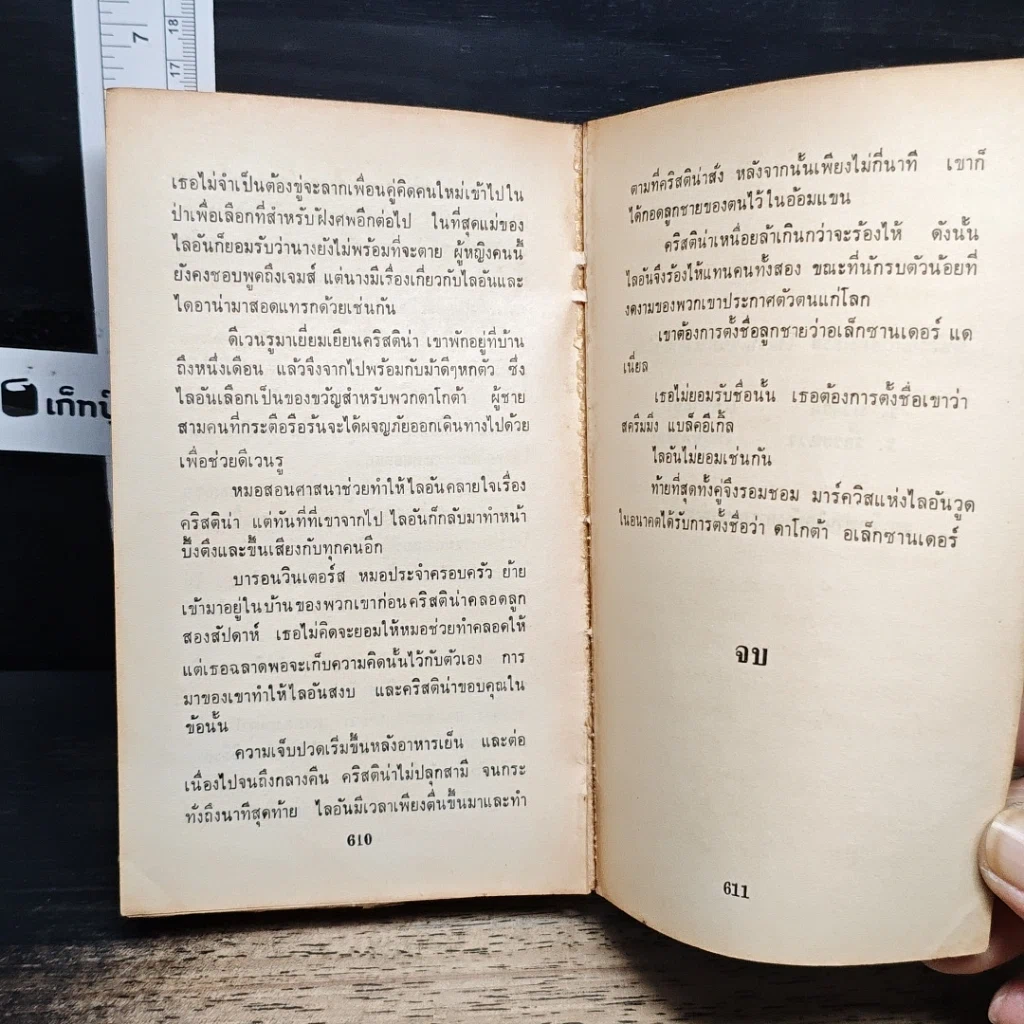 7
18
17
เก็ทบุ๊
เธอไม่จำเป็นต้องขู่จะลากเพื่อนคู่คิดคนใหม่เข้าไปใน
ป่าเพื่อเลือกที่สำหรับฝังศพอีกต่อไป ในที่สุดแม่ของ
ไลอันก็ยอมรับว่านางยังไม่พร้อมที่จะตาย ผู้หญิงคนนี้
ยังคงชอบพูดถึงเจมส์ แต่นางมีเรื่องเกี่ยวกับไลอันและ
ไดอาน่ามาสอดแทรกด้วยเช่นกัน
ดีเวนรูมาเยี่ยมเยียนคริสติน่า เขาพักอยู่ที่บ้าน
ถึงหนึ่งเดือน แล้วจึงจากไปพร้อมกับม้าดีๆหกตัว ซึ่ง
ไลอันเลือกเป็นของขวัญสำหรับพวกดาโกต้า ผู้ชาย
สามคนที่กระตือรือร้นจะได้ผจญภัยออกเดินทางไปด้วย
เพื่อช่วยดีเวนรู
หมอสอนศาสนาช่วยทำให้ไลอันคลายใจเรื่อง
คริสติน่า แต่ทันทีที่เขาจากไป ไลอันก็กลับมาทำหน้า
บึ้งตึงและขึ้นเสียงกับทุกคนอีก
บารอนวินเตอร์ส หมอประจำครอบครัว ย้าย
เข้ามาอยู่ในบ้านของพวกเขาก่อนคริสติน่าคลอดลูก
สองสัปดาห์ เธอไม่คิดจะยอมให้หมอช่วยทำคลอดให้
แต่เธอฉลาดพอจะเก็บความคิดนั้นไว้กับตัวเอง การ
มาของเขาทำให้ไลอันสงบ และคริสติน่าขอบคุณใน
ข้อนั้น
ความเจ็บปวดเริ่มขึ้นหลังอาหารเย็น และต่อ
เนื่องไปจนถึงกลางคืน คริสติน่าไม่ปลุกสามี จนกระ
ทั่งถึงนาทีสุดท้าย ไลอันมีเวลาเพียงตื่นขึ้นมาและทำ
610
ตามที่คริสติน่าสั่ง หลังจากนั้นเพียงไม่กี่นาที เขาก็
ได้กอดลูกชายของตนไว้ในอ้อมแขน
คริสติน่าเหนื่อยล้าเกินกว่าจะร้องไห้ ดังนั้น
ไลอันจึงร้องไห้แทนคนทั้งสอง ขณะที่นักรบตัวน้อยที่
งดงามของพวกเขาประกาศตัวตนแก่โลก
เขาต้องการตั้งชื่อลูกชายว่าอเล็กซานเดอร์ แด
เนี่ยล
เธอไม่ยอมรับชื่อนั้น เธอต้องการตั้งชื่อเขาว่า
สครีมมิ่ง แบล็คอีเกิ้ล
ไลอันไม่ยอมเช่นกัน
ท้ายที่สุดทั้งคู่จึงรอมชอม มาร์ควิสแห่งไลอันวูด
ในอนาคตได้รับการตั้งชื่อว่า ดาโกต้า อเล็กซานเดอร์
จบ
611